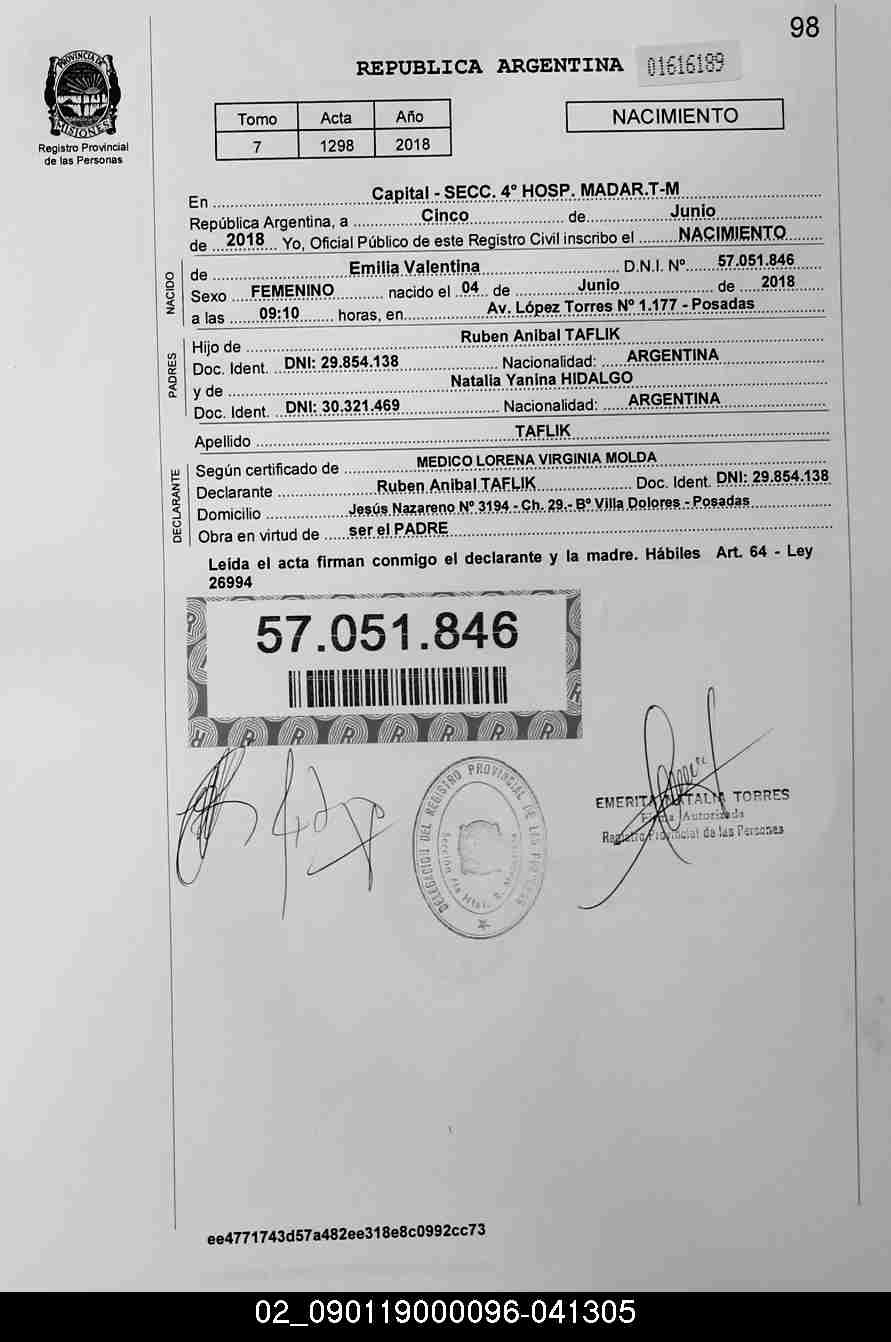 98
PROVINCIA DE
MISIONES
Registro Provincial
de las Personas
REPUBLICA ARGENTINA 01616189
Tomo Acta Año
7 1298 2018
NACIMIENTO
En Capital - SECC. 4º HOSP. MADAR.T-M
República Argentina, a Cinco de Junio
de 2018 Yo, Oficial Público de este Registro Civil inscribo el NACIMIENTO
NACIDO
de Emilia Valentina D.N.I. Nº 57.051.846
Sexo FEMENINO nacido el 04 de Junio de 2018
a las 09:10 horas, en Av. López Torres Nº 1.177 - Posadas
PADRES
Hijo de Ruben Anibal TAFLIK
Doc. Ident. DNI: 29.854.138 Nacionalidad: ARGENTINA
y de Natalia Yanina HIDALGO
Doc. Ident. DNI: 30.321.469 Nacionalidad: ARGENTINA
Apellido TAFLIK
DECLARANTE
Según certificado de MEDICO LORENA VIRGINIA MOLDA
Declarante Ruben Anibal TAFLIK Doc. Ident. DNI: 29.854.138
Domicilio Jesús Nazareno Nº 3194 - Ch. 29.- Bº Villa Dolores - Posadas
Obra en virtud de ser el PADRE
Leída el acta firman conmigo el declarante y la madre. Hábiles Art. 64 - Ley
26994
57.051.846
DELEGACION DEL REGISTRO PROVINCIAL DE LAS
EMERITA NATALIA TORRES
Firma Autorizada
Registro Provincial de las Personas
ee4771743d57a482ee318e8c0992cc73
02_090119000096-041305